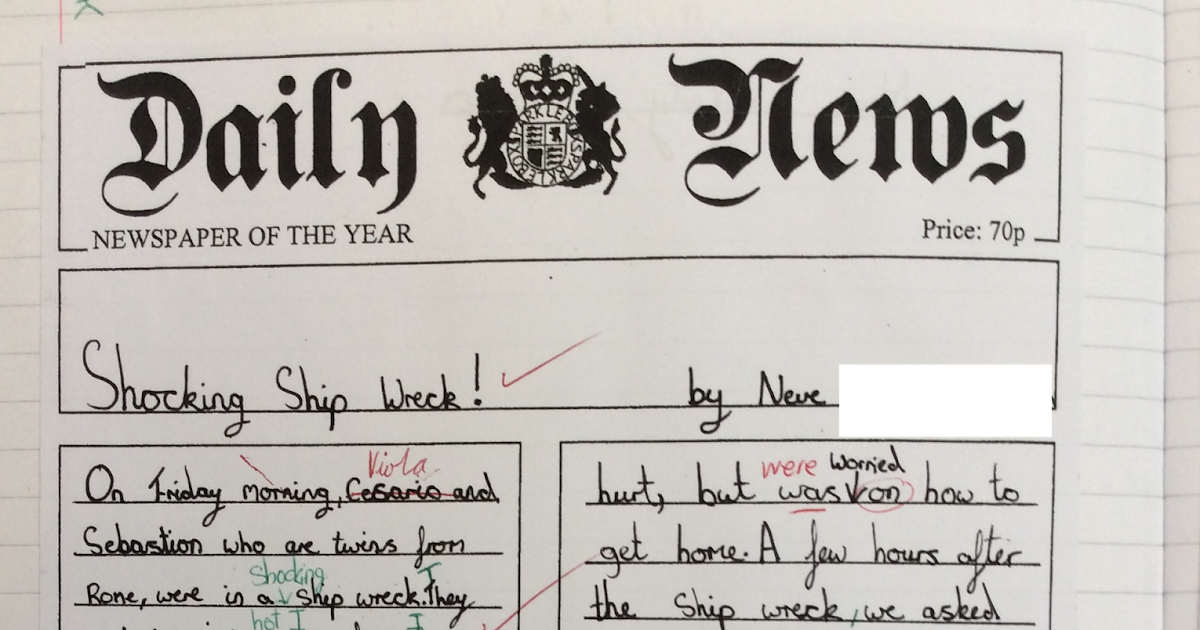 Daily News
NEWSPAPER OF THE YEAR
Price: 70p
Shocking Ship Wreck!
by Neve
Viola
On Friday morning, Cesario and
Sebastion who are twins from
Shocking I
Rome, were in a Ship wreck. They
hot I I
were worried
hurt, but was on how to
get home. A few hours after
the Ship wreck, we asked